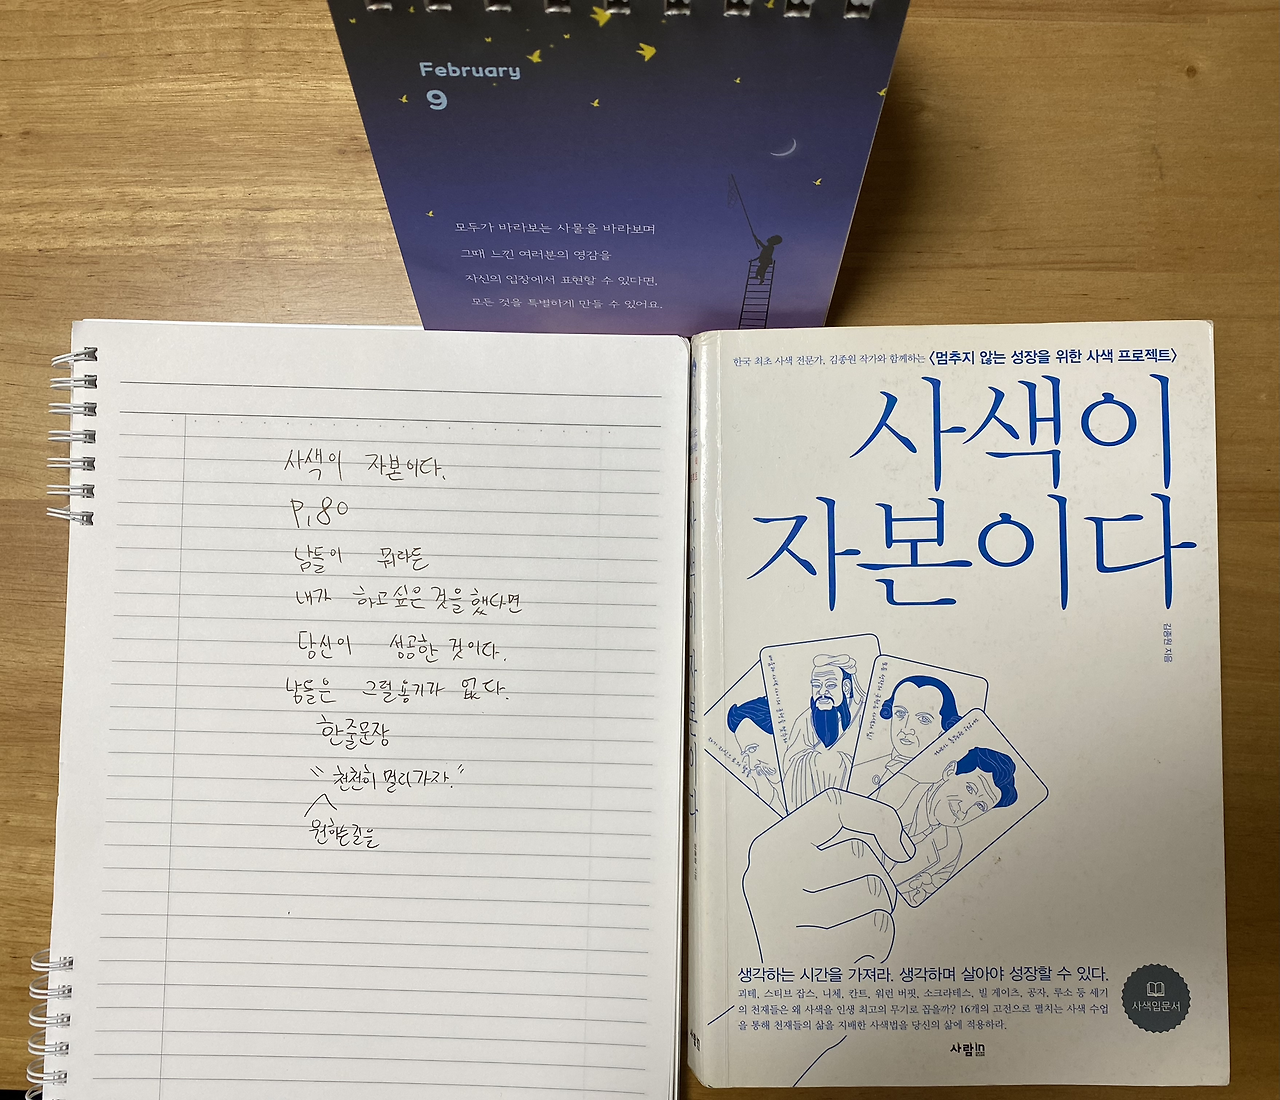 February
9
모두가 바라보는 사물을 바라보며
그때 느낀 여러분의 영감을
자신의 입장에서 표현할 수 있다면,
모든 것을 특별하게 만들 수 있어요.
사색이 자본이다.
P.80
남들이 뭐라든
내가 하고싶은 것을 했다면
당신이 성공한 것이다.
남들은 그럴용기가 없다.
한줄문장
"천천히 멀리가자."
원하는길을
한국 최초 사색 전문가, 김종원 작가와 함께하는 〈멈추지 않는 성장을 위한 사색 프로젝트〉
사색이
자본이다
김종원 지음
생각하는 시간을 가져라. 생각하며 살아야 성장할 수 있다.
괴테, 스티브 잡스, 니체, 칸트, 워런 버핏, 소크라테스, 빌 게이츠, 공자, 루소 등 세기
의 천재들은 왜 사색을 인생 최고의 무기로 꼽을까? 16개의 고전으로 펼치는 사색 수업
을 통해 천재들의 삶을 지배한 사색법을 당신의 삶에 적용하라.
사색입문서
사람in